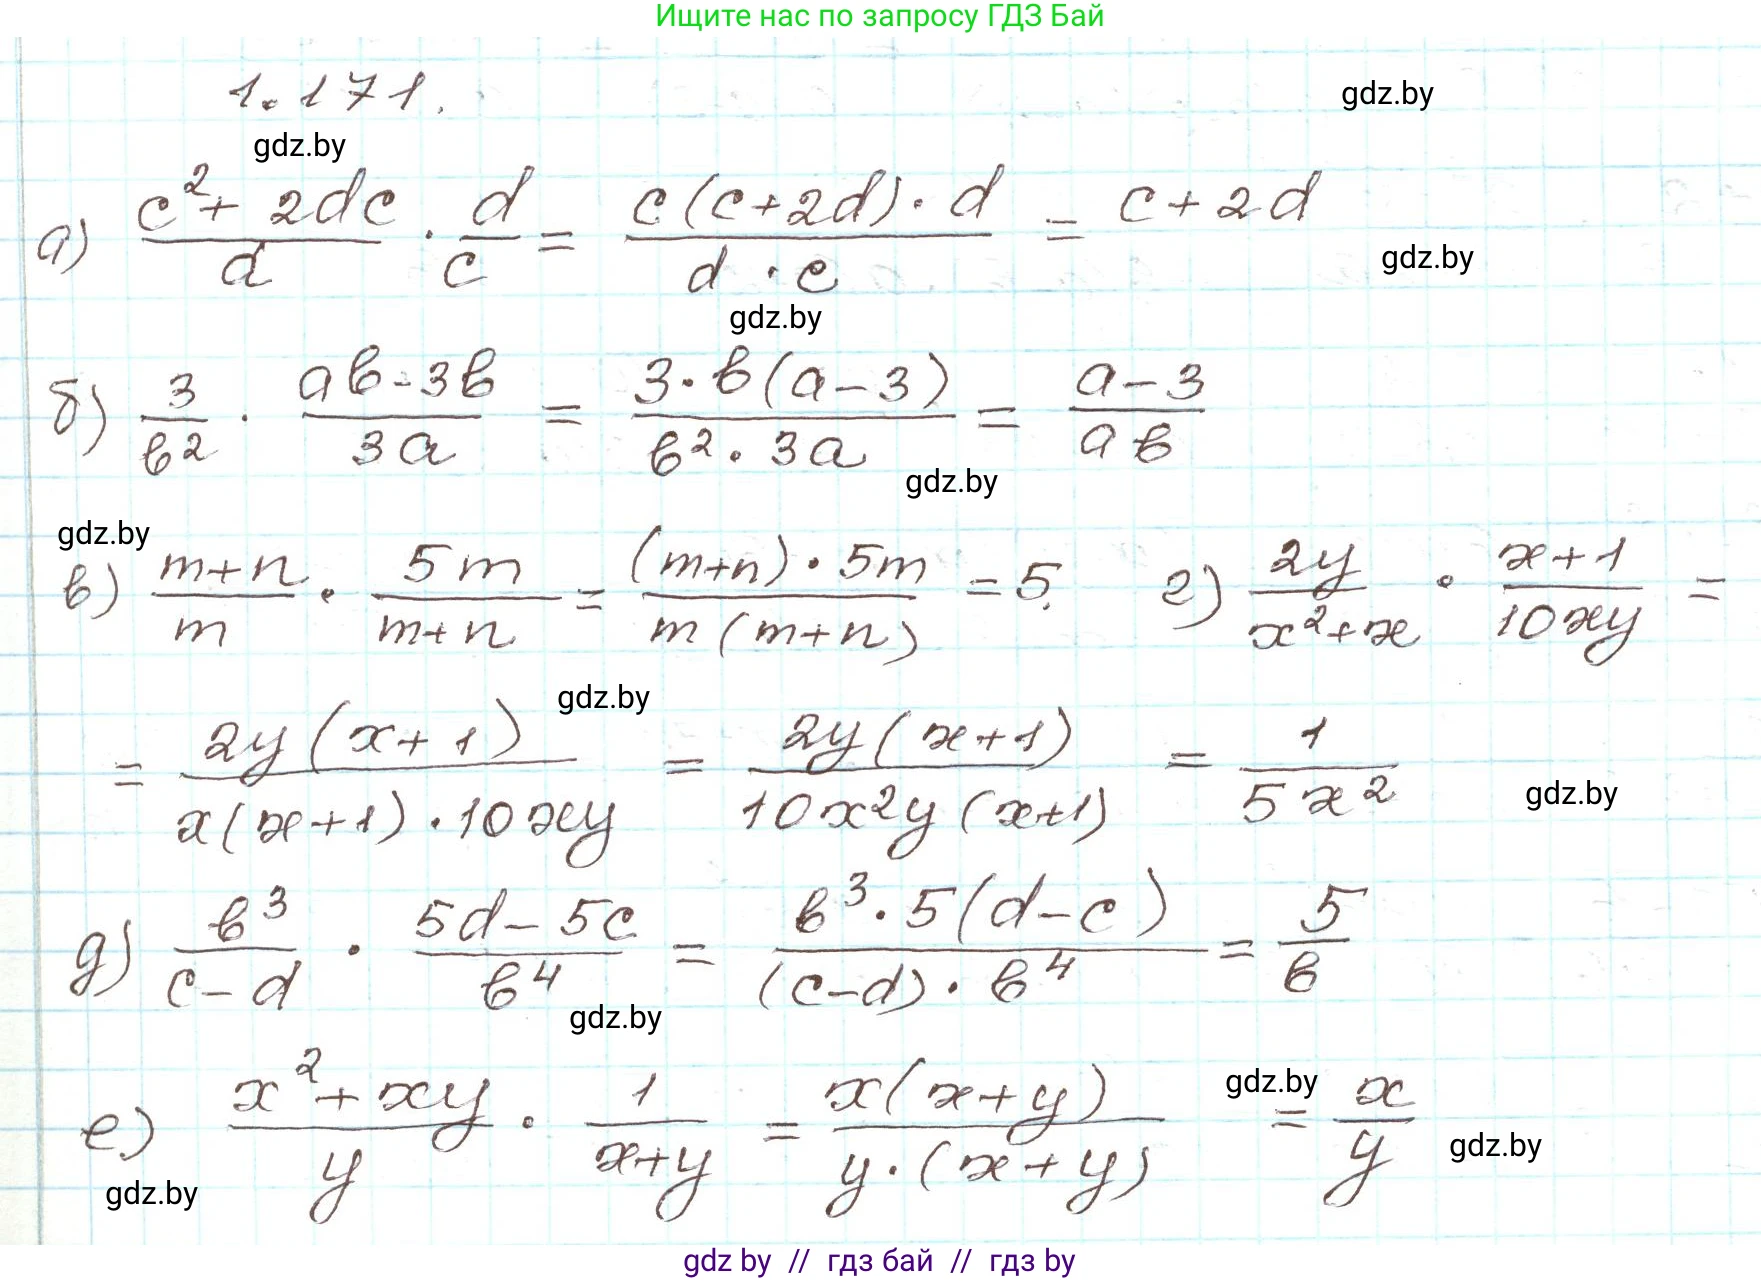 Ищите нас по запросу ГДЗ Бай
1.171.
gdz.by
gdz.by
а) (c² + 2dc)/d · d/c = (c(c+2d)·d)/(d·c) = c+2d
gdz.by
gdz.by
б) 3/b² · (ab-3b)/(3a) = (3·b(a-3))/(b²·3a) = (a-3)/(ab)
gdz.by
gdz.by
в) (m+n)/m · 5m/(m+n) = ((m+n)·5m)/(m(m+n)) = 5. г) 2y/(x²+x) · (x+1)/(10xy) =
gdz.by
= (2y(x+1))/(x(x+1)·10xy) = (2y(x+1))/(10x²y(x+1)) = 1/(5x²)
gdz.by
д) b³/(c-d) · (5d-5c)/b⁴ = (b³·5(d-c))/((c-d)·b⁴) = 5/b
gdz.by
е) (x²+xy)/y · 1/(x+y) = (x(x+y))/(y·(x+y)) = x/y
gdz.by
gdz.by
gdz.by
gdz by // гдз бай // гдз by